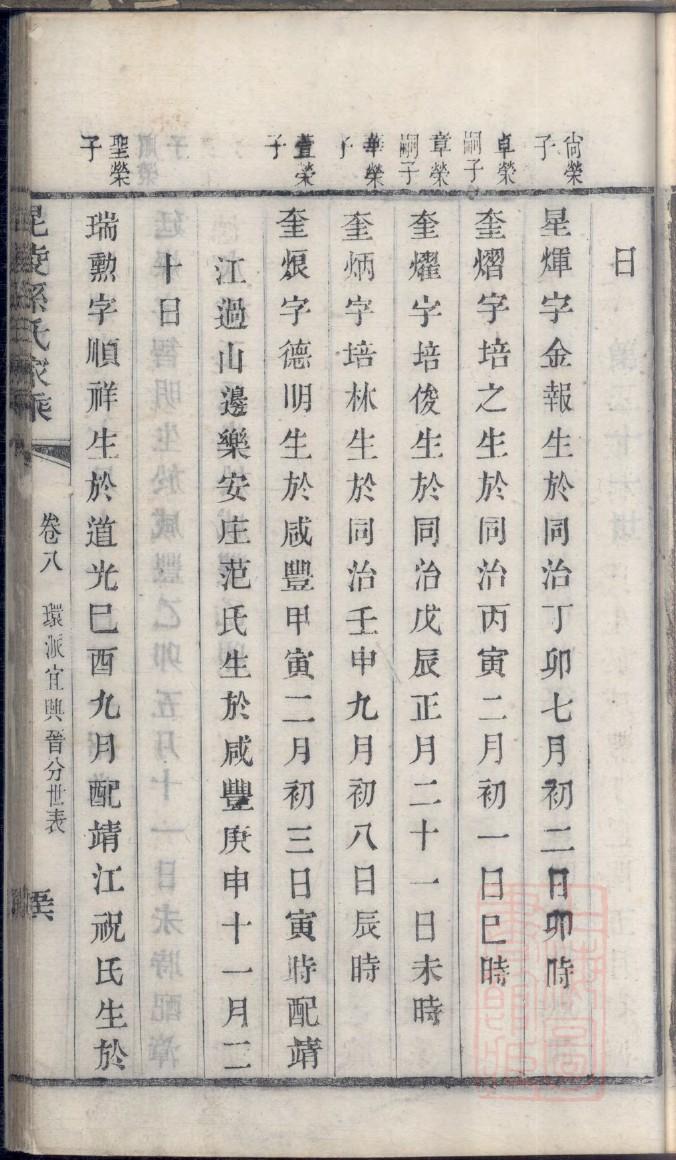 日
尙榮子
星煇字金報生於同治丁卯七月初二日卯時
卓榮嗣子
奎熠字培之生於同治丙寅二月初一日巳時
章榮嗣子
奎燿字培俊生於同治戊辰正月二十一日未時
華榮子
奎炳字培林生於同治壬申九月初八日辰時
萱榮子
奎烺字德明生於咸豐甲寅二月初三日寅時配靖
江過山邊樂安庄范氏生於咸豐庚申十一月二
十日
聖榮子
瑞勳字順祥生於道光巳酉九月配靖江祝氏生於
毘陵孫氏家乘
卷八
環派宜興晉分世表